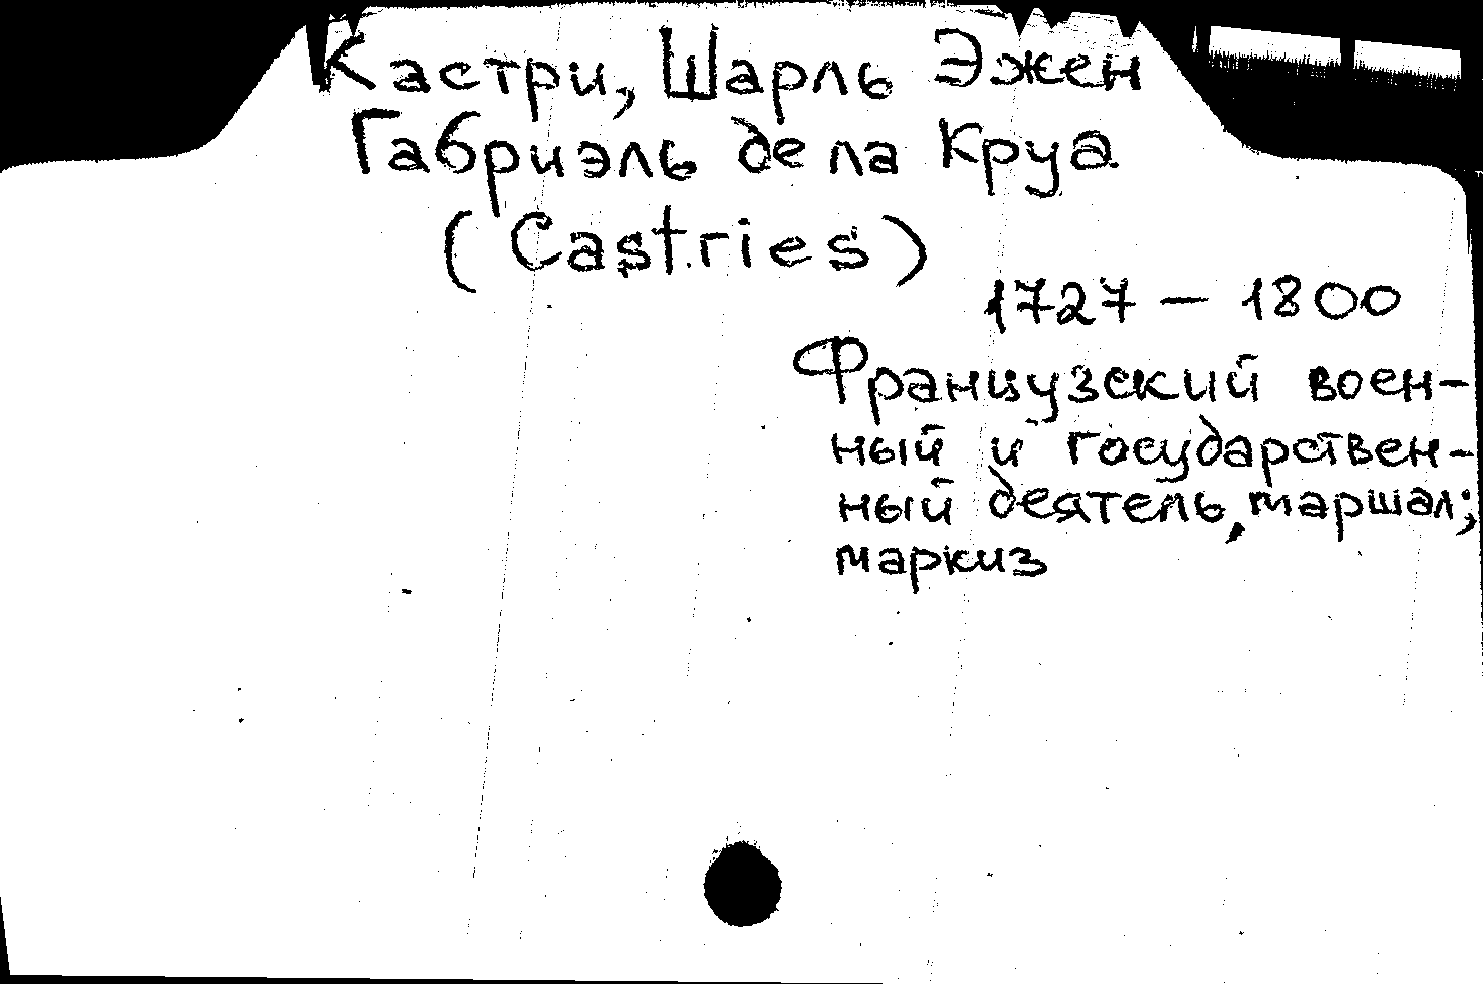 Кастри, Шарль Эжен
Габриэль де ла Круа
(Castries)
1727 — 1800
Французский воен-
ный и государствен-
ный деятель, маршал;
маркиз